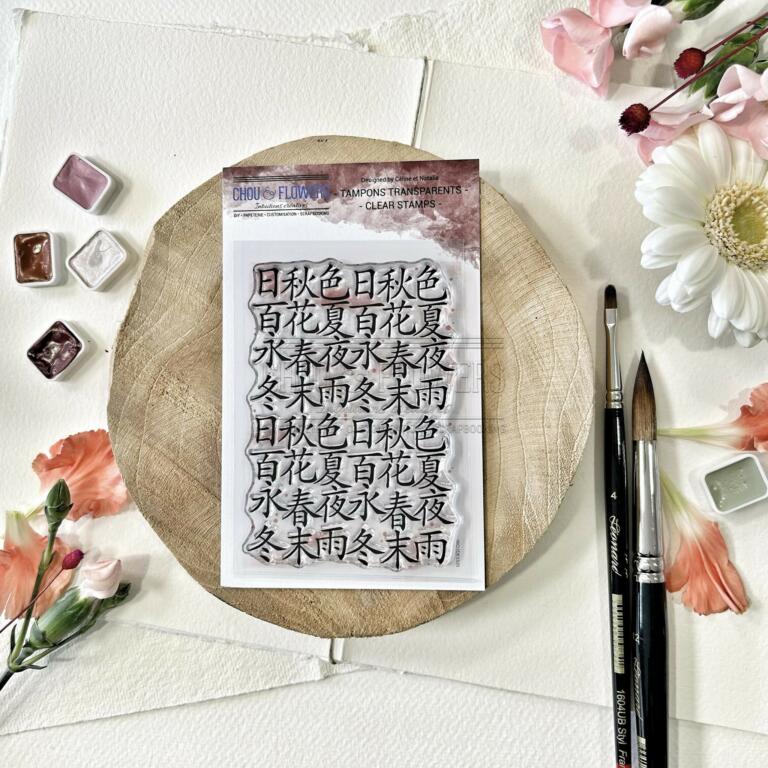 Designed by Céline et Natalia
CHOU & FLOWERS
Intuitions créatives
DIY • PAPETERIE • CUSTOMISATION • SCRAPBOOKING
- TAMPONS TRANSPARENTS -
- CLEAR STAMPS -
日秋色日秋色
百花夏百花夏
永春夜永春夜
冬末雨冬末雨
日秋色日秋色
百花夏百花夏
永春夜永春夜
冬末雨冬末雨
4
Léonard
1604UB Styl